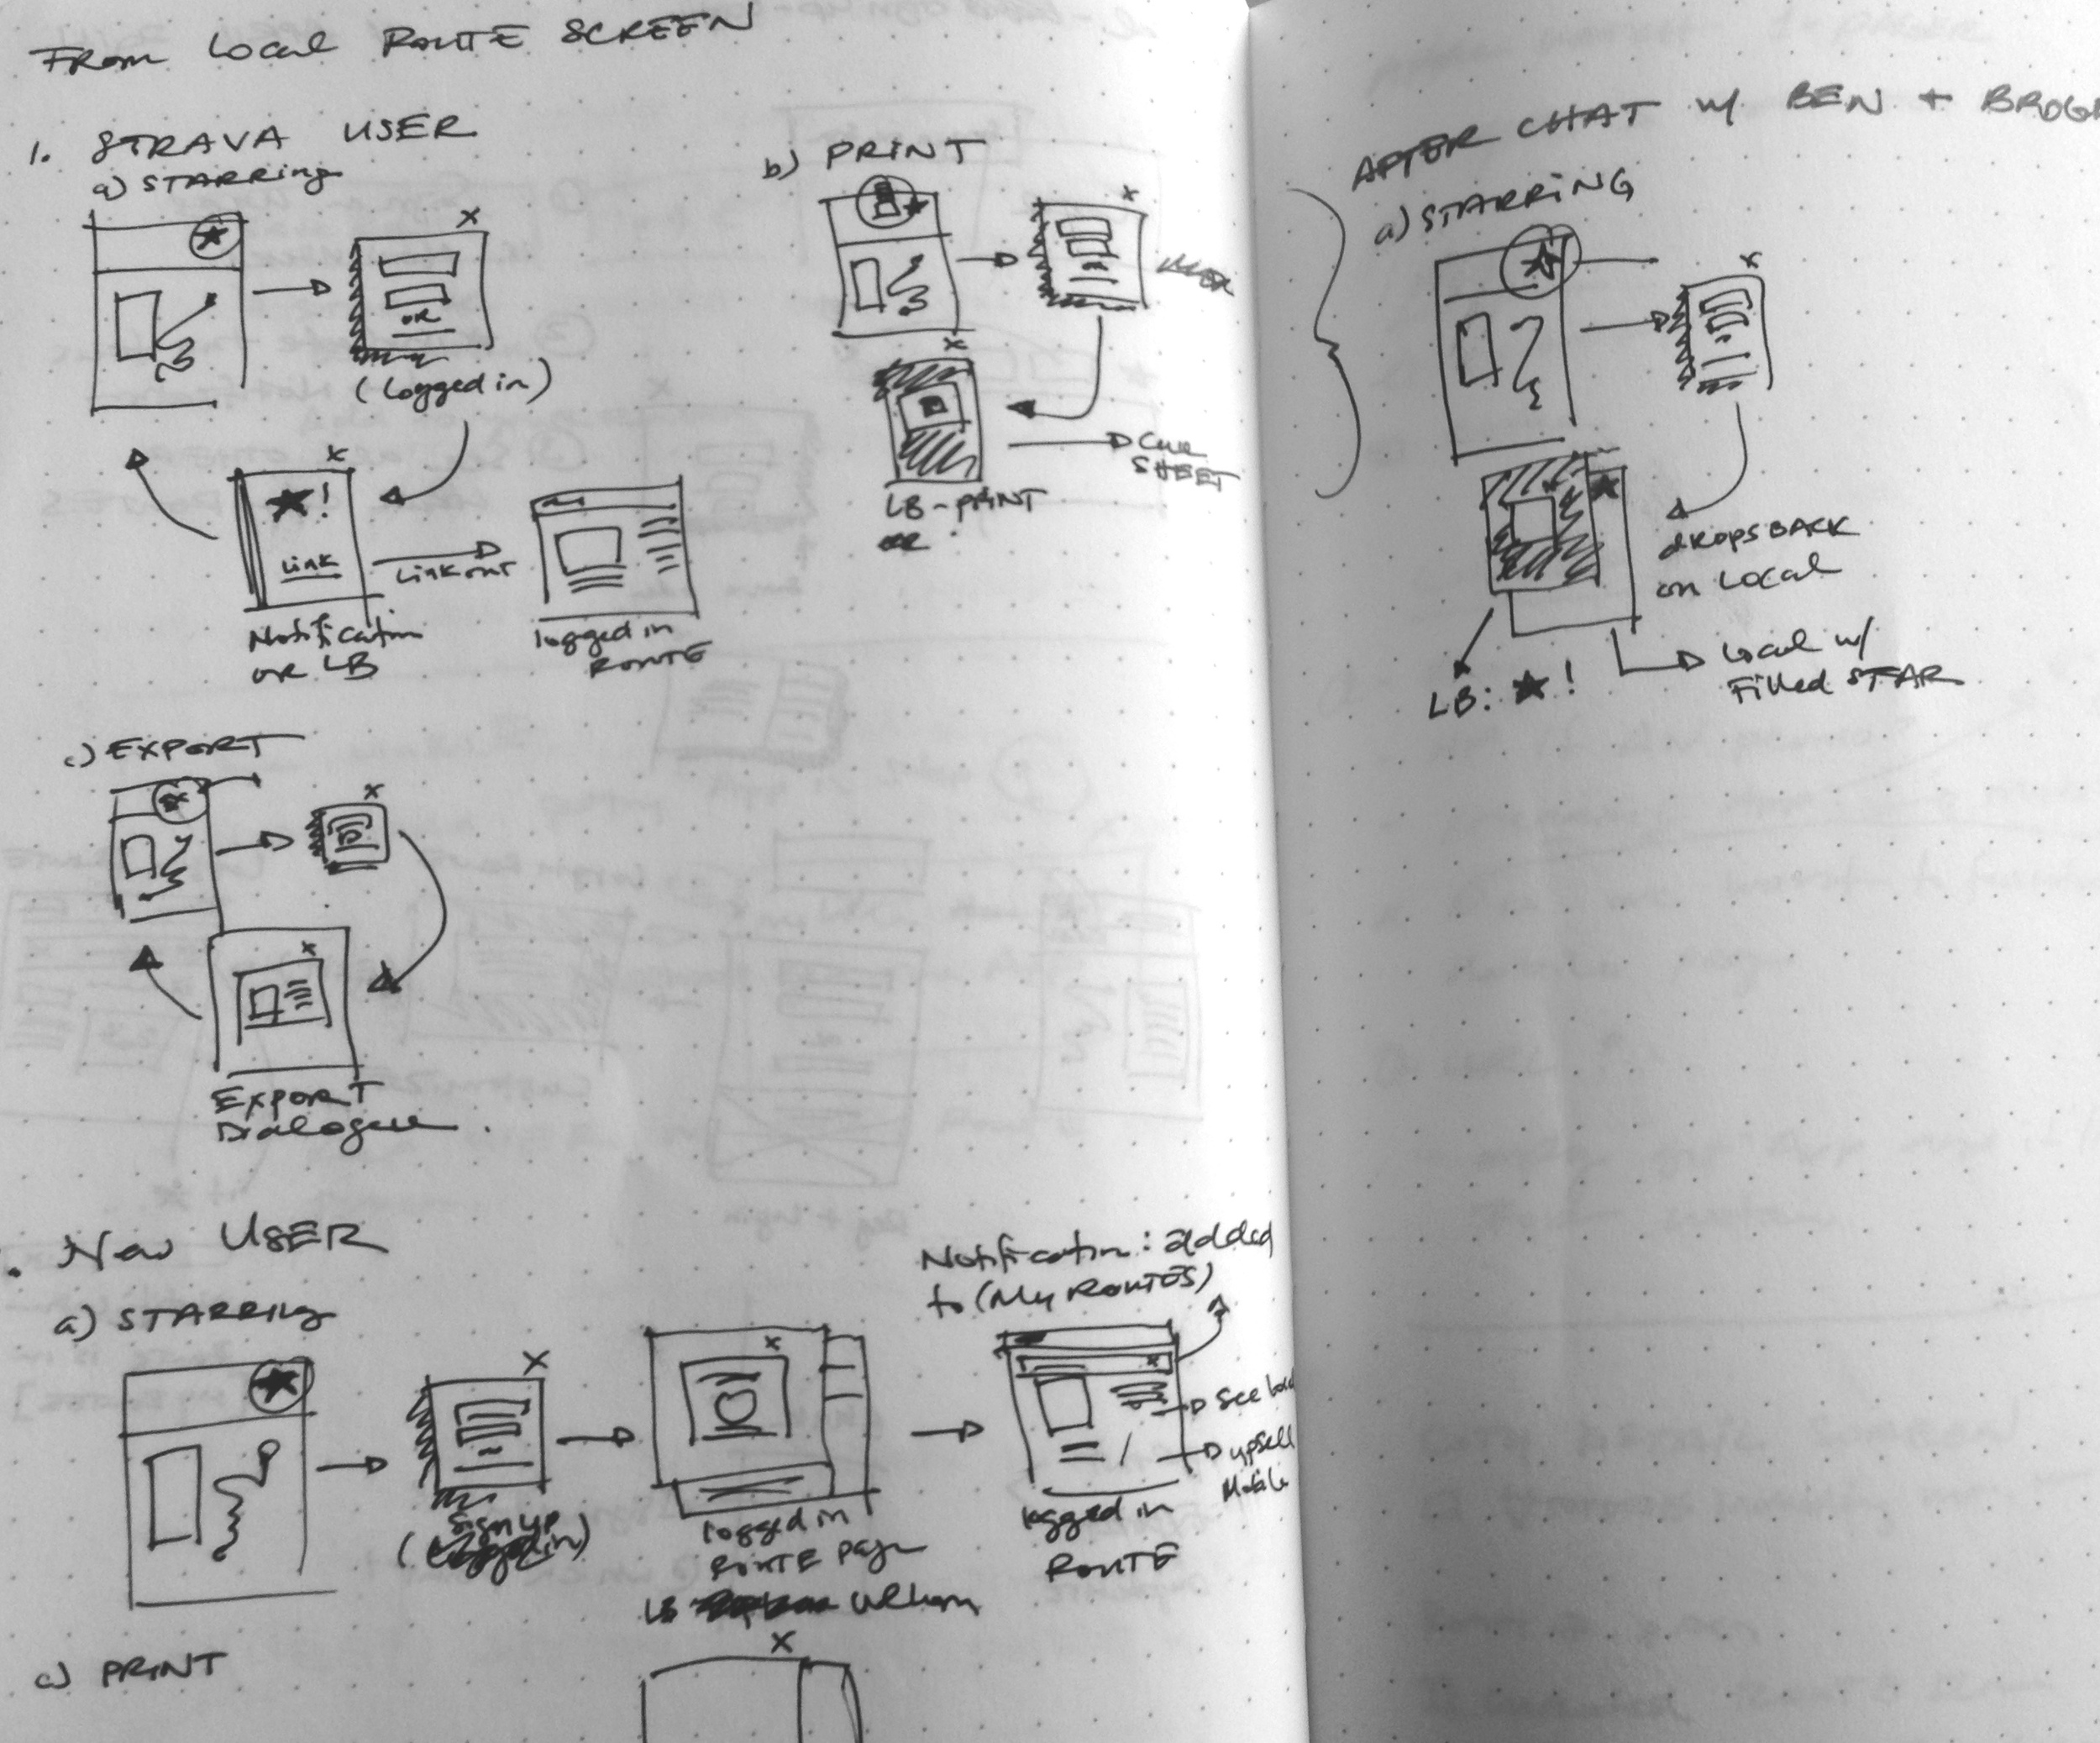 From Local ROUTE SCREEN
1. STRAVA USER
a) STARRing
OR
(Logged in)
★!
Link
Link out
Notification
OR LB
logged in
ROUTE
b) PRINT
CUE
SHEET
LB-PRINT
c) EXPORT
EXPORT
Dialogue.
. New USER
a) STARRing
Sign up
logged in
ROUTE page
LB
Notification: added
to (My ROUTES)
See
upsell
Mobile
logged in
ROUTE
c) PRINT
AFTER CHAT w/ BEN +
a) STARRING
drops BACK
on Local
Local w/
Filled STAR
LB: ★!